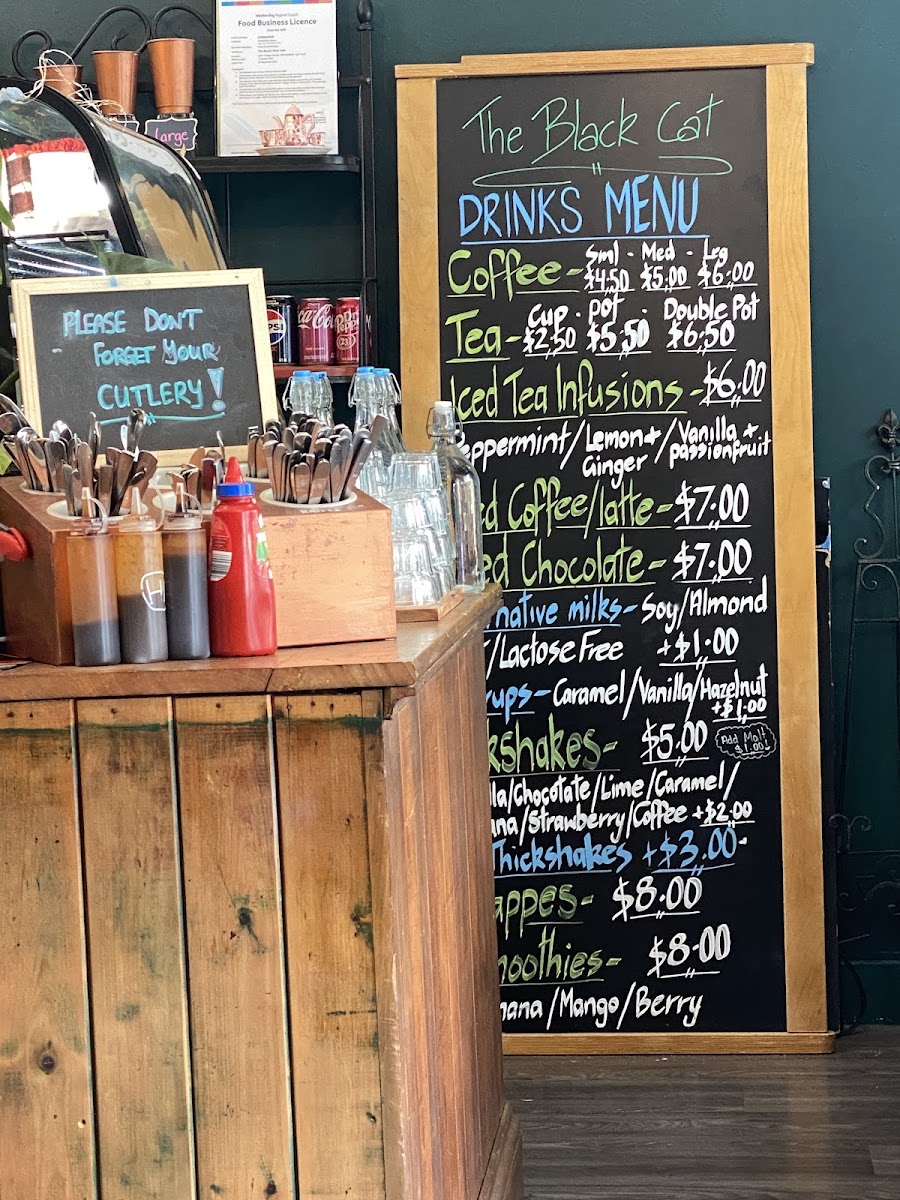 Food Business Licence
Large
The Black Cat
DRINKS MENU
Coffee - Sml - Med - Lrg
$4.50 $5.00 $6.00
Tea - Cup · Pot · Double Pot
$2.50 $5.50 $6.50
Iced Tea Infusions - $6.00
eppermint/Lemon+ Ginger/Vanilla + passionfruit
ed Coffee/latte - $7.00
ed Chocolate - $7.00
native milks - Soy/Almond
/Lactose Free +$1.00
ups - Caramel/Vanilla/Hazelnut
+$1.00
kshakes - $5.00
Add Malt
$1.00!
lla/Chocolate/Lime/Caramel/
ana/Strawberry/Coffee +$2.00
Thickshakes +$3.00
appes - $8.00
moothies - $8.00
nana/Mango/Berry
PLEASE DON'T
FORGET YOUR
CUTLERY!
PSI
Coca-Col
Dr Pepper
23
H